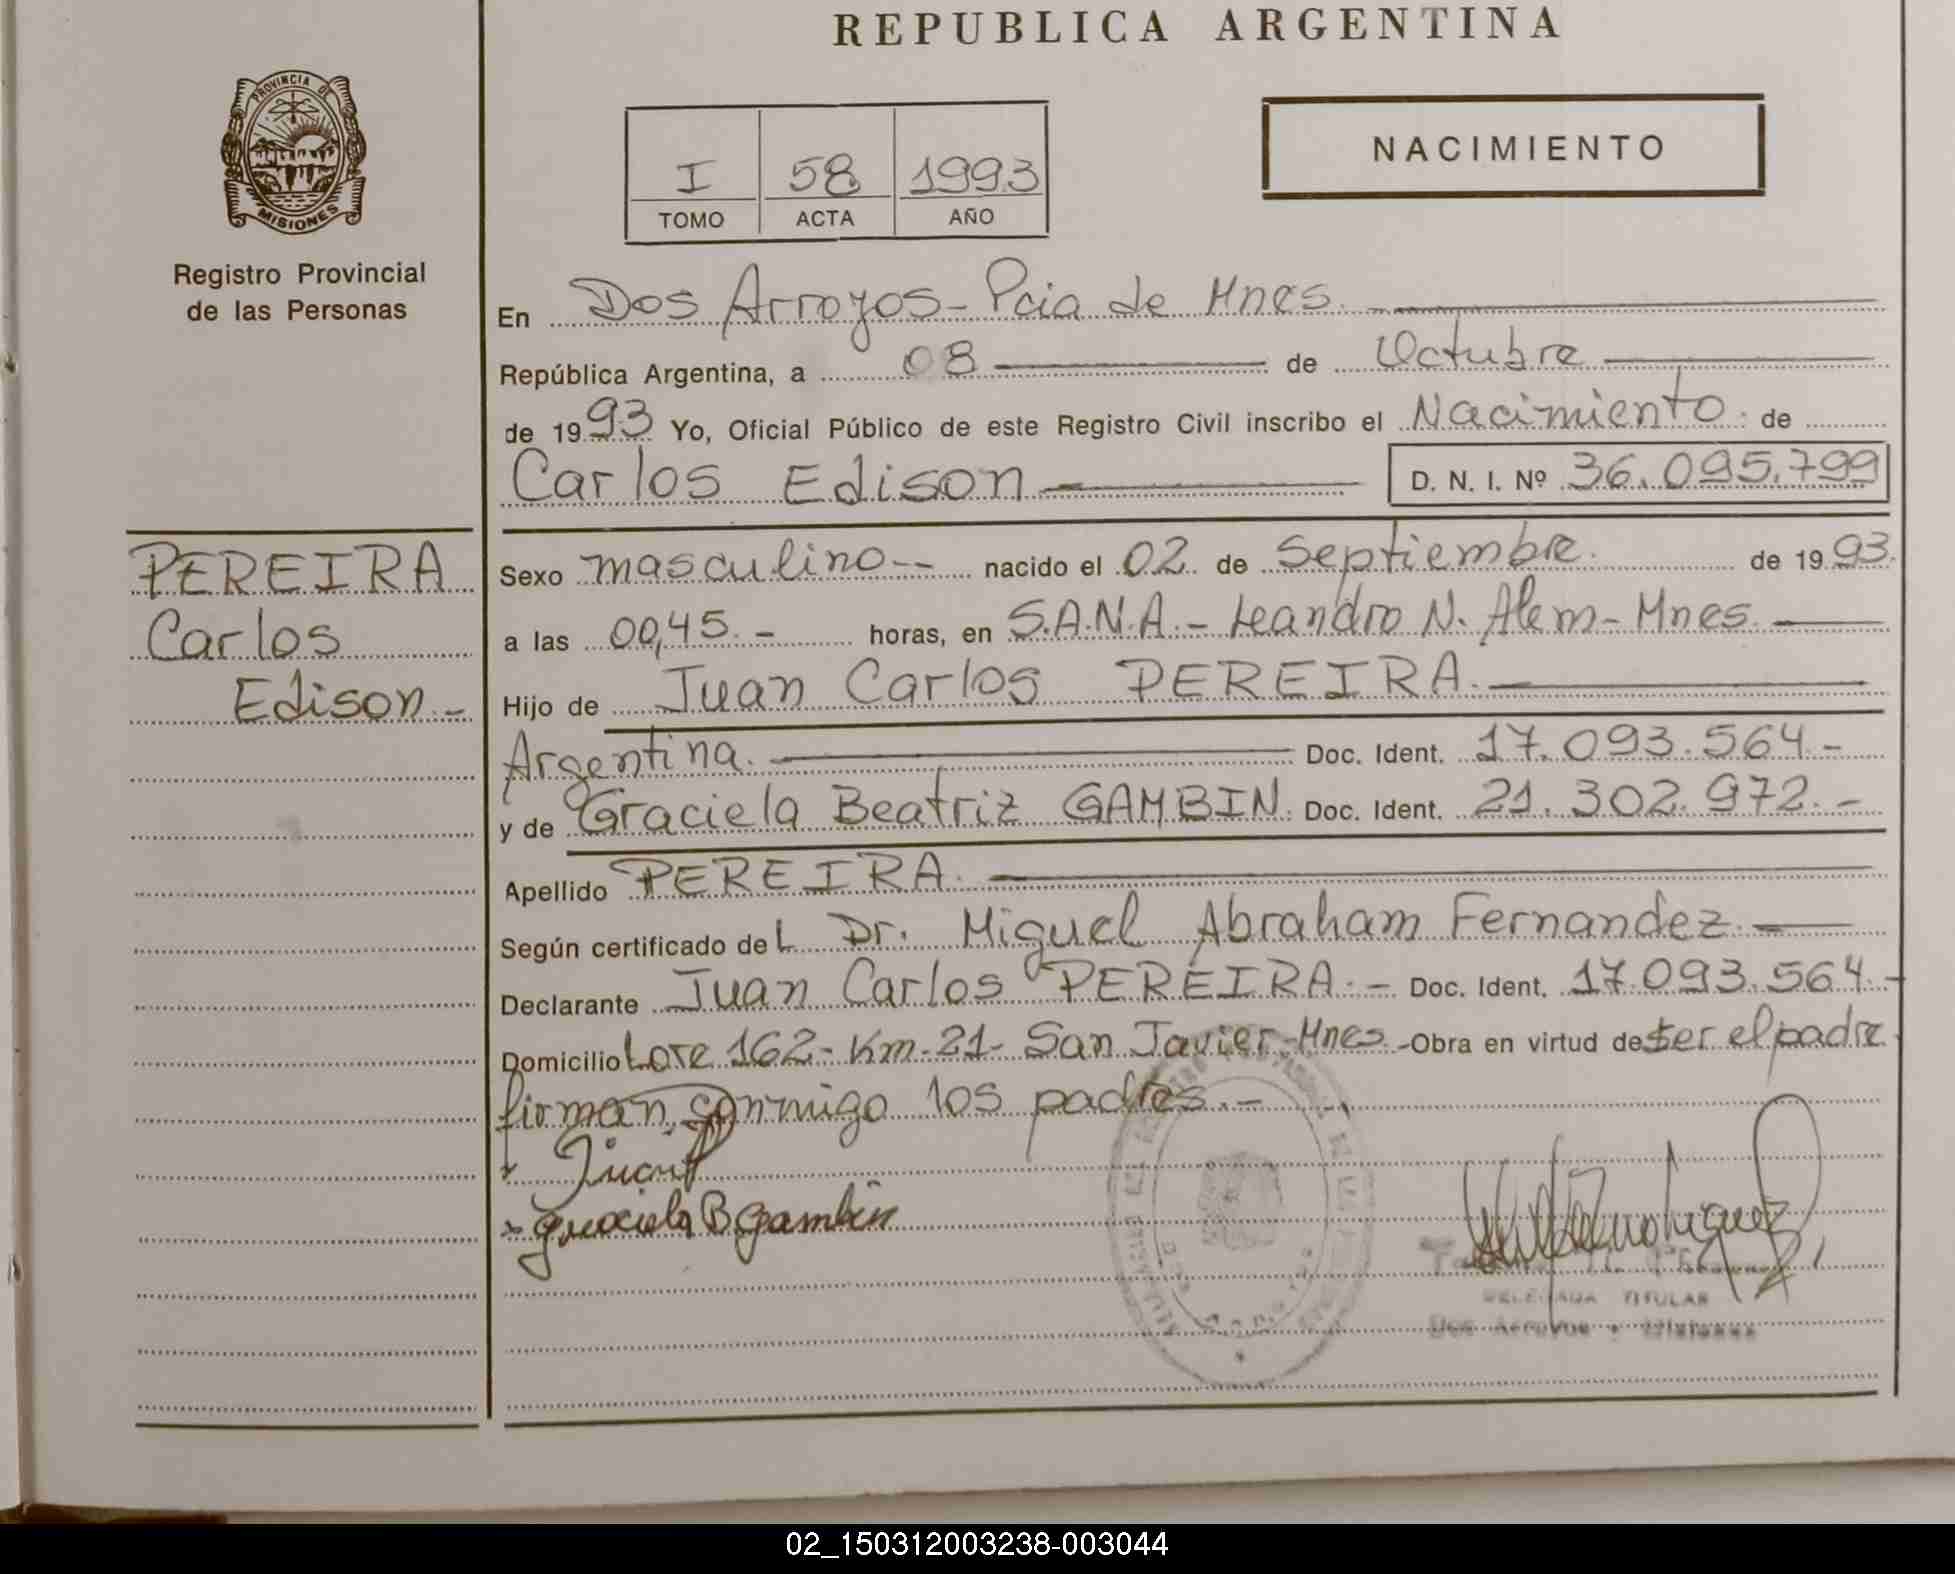 REPUBLICA ARGENTINA
PROVINCIA DE
MISIONES
Registro Provincial
de las Personas
I 58 1993
TOMO ACTA AÑO
NACIMIENTO
En Dos Arroyos - Pcia de Mnes.
República Argentina, a 08 de Octubre
de 1993 Yo, Oficial Público de este Registro Civil inscribo el Nacimiento de
Carlos Edison D. N. I. Nº 36.095.799
PEREIRA
Carlos
Edison -
Sexo masculino -- nacido el 02 de Septiembre. de 1993.
a las 00,45. - horas, en S.A.N.A. - Leandro N. Alem - Mnes.
Hijo de Juan Carlos PEREIRA.
Argentina. Doc. Ident. 17.093.564.-
y de Graciela Beatriz GAMBIN. Doc. Ident. 21.302.972.-
Apellido PEREIRA.
Según certificado del Dr. Miguel Abraham Fernandez.
Declarante Juan Carlos PEREIRA. - Doc. Ident. 17.093.564.-
Domicilio Lote 162 - Km - 21 - San Javier - Mnes. - Obra en virtud de ser el padre
firman conmigo los padres. -
Juan
Graciela B Gambin
DELEGADA TITULAR
Dos Arroyos - Misiones
02_150312003238-003044